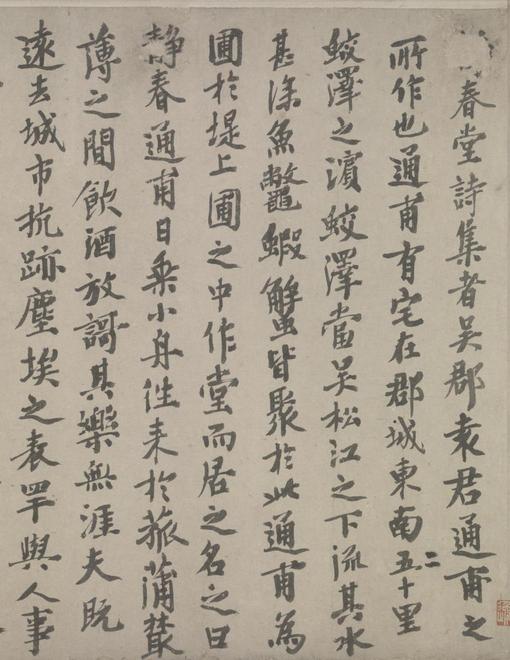 春堂詩集者吳郡袁君通甫之
所作也通甫有宅在郡城東南五十里
蛟澤之濱蛟澤當吳松江之下流其水
甚深魚鼈蝦蟹皆聚於此通甫為
圃於堤上圃之中作堂而居之名之曰
靜春通甫日乘小舟往来於菰蒲藂
薄之間飲酒放謌其樂無涯夫既
遠去城市抗跡塵埃之表罕與人事